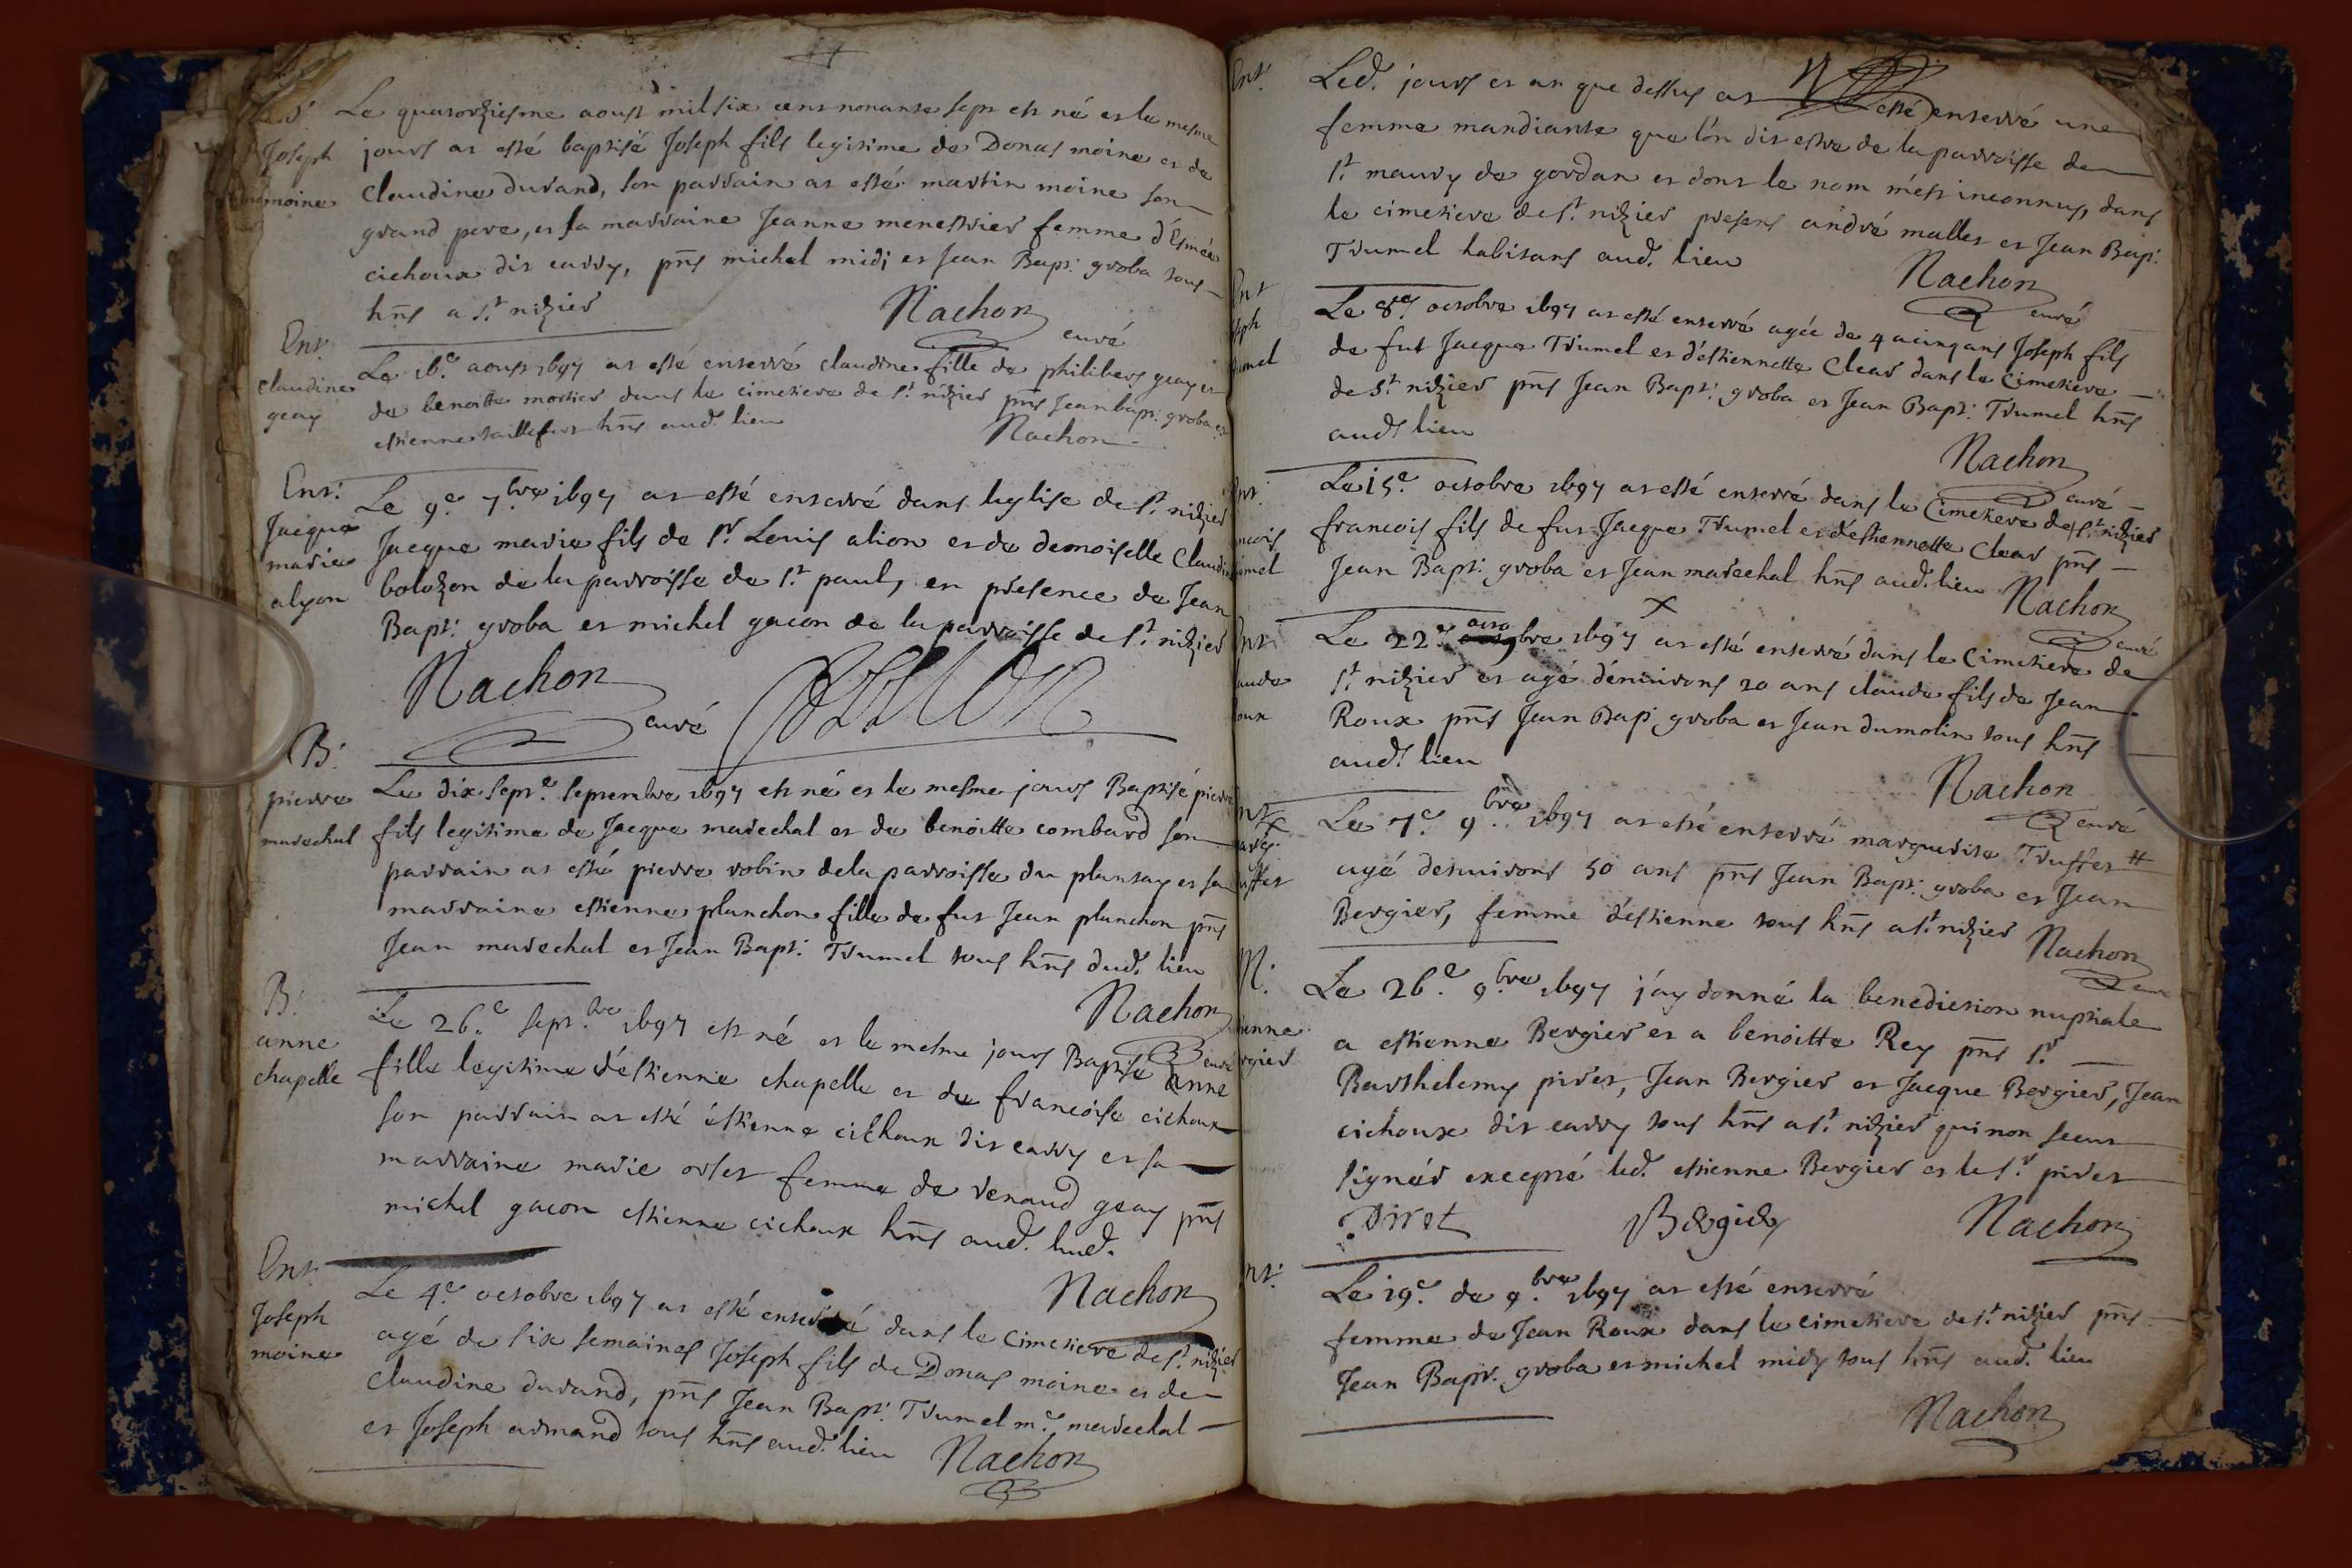 Le quatorziesme aoust mil six cens nonante sept est né et le mesme
Joseph
moine
jours at esté baptisé Joseph fils legitime de Donas moine et de
Claudine durand, son parrain at esté martin moine son
grand pere, et sa marraine Jeanne menestrier femme d'Esmée
cichoux dit carry, pñs michel midi et Jean Bapt: groba tous
hñs a st nizier
Nachon curé
Ent:
claudine
geay
Le 16.e aoust 1697 at esté enterré claudine fille de philibers geay et
de benoitte mortier dans le cimetiere de st. nizier pñs Jean bapt: groba et
estienne taillefert hñs aud. lieu
Nachon
Ent:
Jacque
marie
alyon
Le 9.e 7.bre 1697 at esté enterré dans leglise de st. nizier
Jacque marie fils de sr. Louis alion et de demoiselle Claudine
bolozon de la parroisse de st. paul, en presence de Jean
Bapt: groba et michel gacon de la parroisse de st. nizier
Nachon
curé
B:
pierre
marechal
Le dix sept.e septembre 1697 est né et le mesme jours Baptisé pierre
fils legitime de Jacque marechal et de benoitte combard son
parrain at esté pierre robin de la parroisse du plantay et sa
marraine estienne planchon fille de fut Jean planchon pñs
Jean marechal et Jean Bapt: Trumel tous hñs dud. lieu
Nachon curé
B:
anne
chapelle
Le 26.e sept.bre 1697 est né et le mesme jours Baptisé anne
fille legitime d'éstienne chapelle et de francoise cichoux
son parrain at esté éstienne cichoux dit carry et sa
marraine marie orset femme de renaud geay pñs
michel gacon estienne cichoux hñs aud. lieud.
Nachon
Ent:
Joseph
moine
Le 4.e octobre 1697 at esté enterré dans le cimetiere de st. nizier
agé de six semaines Joseph fils de Donas moine et de
Claudine durand, pñs Jean Bapt: Trumel m.e marechal
et Joseph armand tous hñs aud. lieu
Nachon
Ent:
Led. jours et an que dessus at esté enterré une
femme mandiante que l'on dit estre de la parroisse de
st. maury de gordan et dont le nom m'est inconnus, dans
le cimetiere de st. nizier presens andré mallet et Jean Bapt:
Trumel habitans aud. lieu
Nachon
curé
Ent
seph
umel
Le 8.e octobre 1697 at esté enterré agée de 4 a cinq ans Joseph fils
de fut Jacque Trumel et d'éstiennette Clear dans le Cimetiere
de st. nizier pñs Jean Bapt: groba et Jean Bapt: Trumel hñs
aud. lieu
Nachon
curé
Ent:
ncois
umel
Le 15.e octobre 1697 at esté enterré dans le Cimetiere de st. nizier
francois fils de fut Jacque Trumel et d'éstiennette Clear pñs
Jean Bapt: groba et Jean marechal hñs aud. lieu
Nachon
curé
Ent:
aude
oux
Le 22.e octobre 1697 at esté enterré dans le Cimetiere de
st. nizier et agé d'énuirons 20 ans claude fils de Jean
Roux pñs Jean Bapt groba et Jean dumolin tous hñs
aud. lieu
Nachon
curé
Le 7.e 9.bre 1697 at esté enterré marguerite Truffet #
agé denuirons 50 ans pñs Jean Bapt: groba et Jean
Bergier, femme d'éstienne tous hñs a st. nizier
Nachon
curé
M:
ienne
rgier
Le 26.e 9.bre 1697 j'ay donné la benediction nuptiale
a estienne Bergier et a benoitte Rey pñs sr.
Barthelemy piret, Jean Bergier et Jacque Bergier, Jean
cichoux dit carry tous hñs a st. nizier qui non sceut
signér excepté led. estienne Bergier et le sr. piret
Piret Bergier Nachon
Ent:
Le 19.e de 9.bre 1697 at esté enterré
femme de Jean Roux dans le cimetiere de st. nizier pñs
Jean Bapt: groba et michel midy tous hñs aud. lieu
Nachon